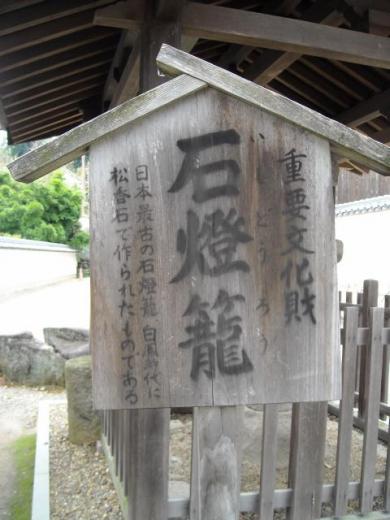 重要文化財
いしどうろう
石燈籠
日本最古の石燈籠 白鳳時代に
松香石で作られたものである